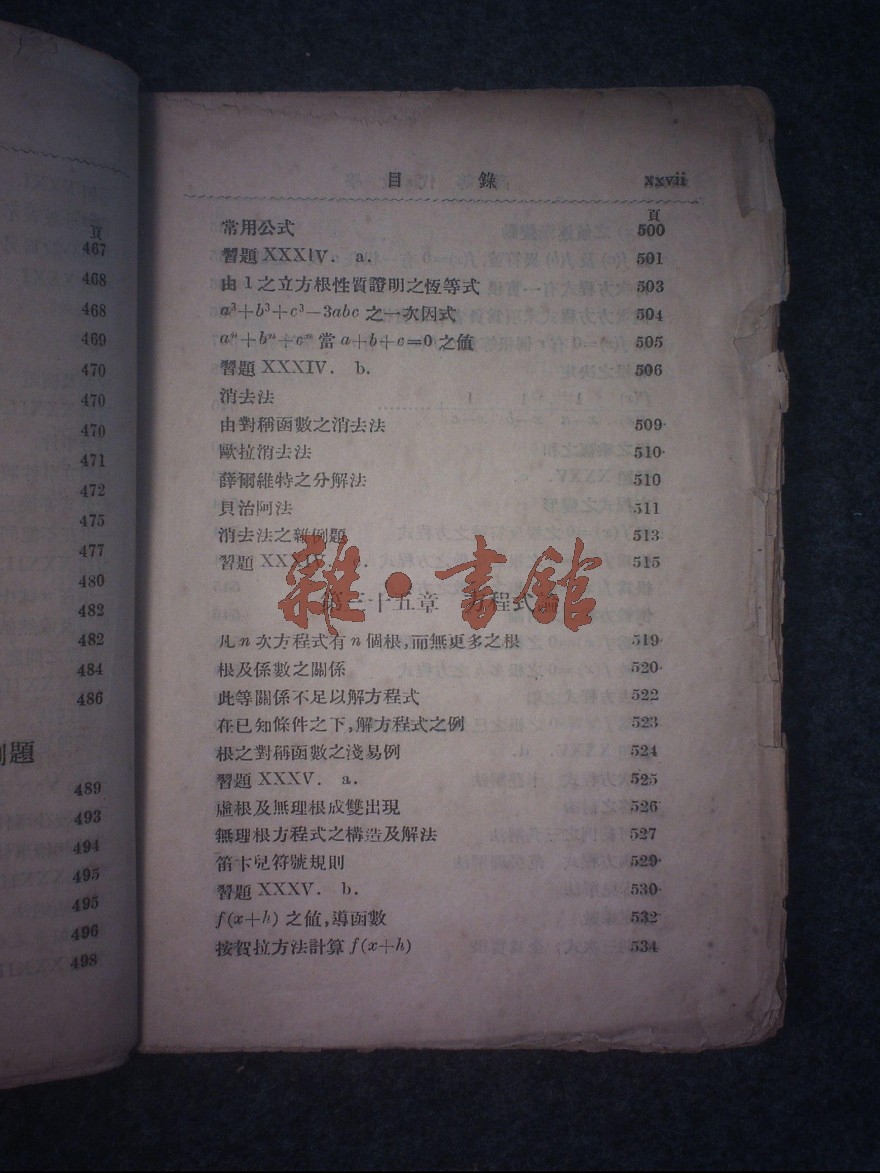 頁
467
468
468
469
470
470
470
471
472
475
477
480
482
482
484
486
題
489
493
494
495
495
496
498
目 錄 xxvii
頁
常用公式 500
習題 XXXIV. a. 501
由 1 之立方根性質證明之恆等式 503
a³+b³+c³−3abc 之一次因式 504
aⁿ+bⁿ+cⁿ 當 a+b+c=0 之値 505
習題 XXXIV. b. 506
消去法
由對稱函數之消去法 509
歐拉消去法 510
薛爾維特之分解法 510
貝治阿法 511
消去法之雜例題 513
習題 XXXIV. c. 515
第三十五章 方程式論
凡 n 次方程式有 n 個根,而無更多之根 519
根及係數之關係 520
此等關係不足以解方程式 522
在已知條件之下,解方程式之例 523
根之對稱函數之淺易例 524
習題 XXXV. a. 525
虛根及無理根成雙出現 526
無理根方程式之構造及解法 527
笛卡兒符號規則 529
習題 XXXV. b. 530
f(x+h) 之値,導函數 532
按賀拉方法計算 f(x+h) 534
雜·書館